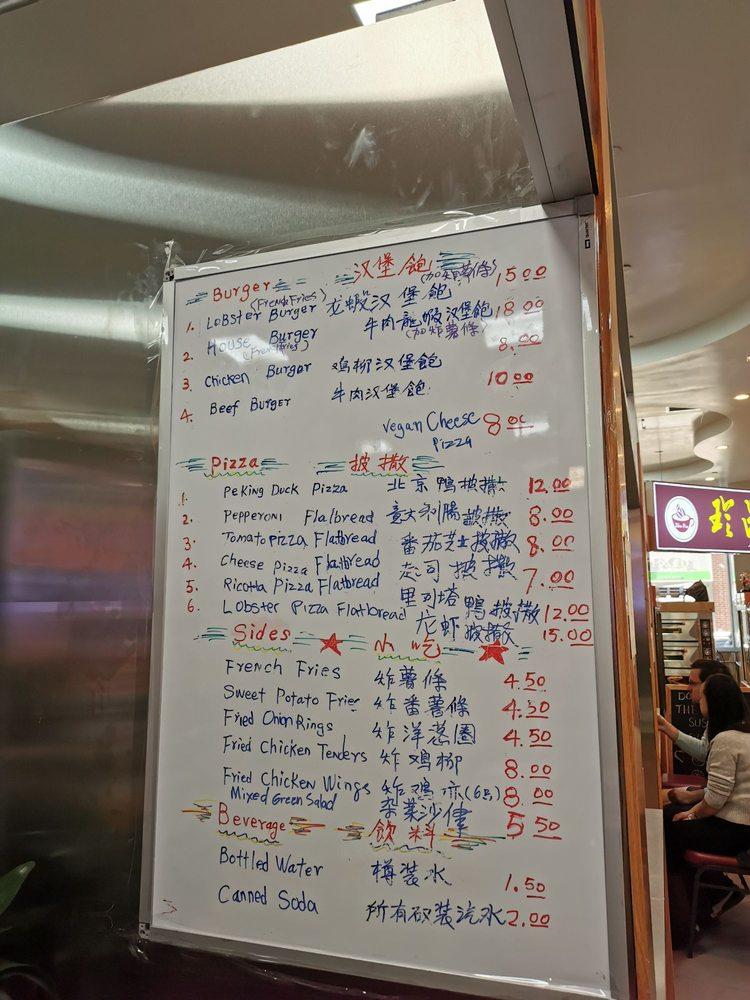 Burger 汉堡飽 (加炸薯條)
(French Fries)
1. Lobster Burger 龙蝦汉堡飽 15.00
2. House Burger 牛肉龍蝦汉堡飽 18.00
(French Fries) (加炸薯條)
3. Chicken Burger 鸡柳汉堡飽 8.00
4. Beef Burger 牛肉汉堡飽 10.00
Vegan Cheese Pizza 8.00
Pizza 披撒
1. Peking Duck Pizza 北京鴨披撒 12.00
2. Pepperoni Flalbread 意大利腸披撒 8.00
3. Tomato pizza Flatbread 番茄芝士披撒 8.00
4. Cheese Pizza Flatbread 起司披撒 7.00
5. Ricotta Pizza Flatbread 里列塔鴨披撒 12.00
6. Lobster Pizza Flatbread 龙虾披撒 15.00
Sides 小吃
French Fries 炸薯條 4.50
Sweet Potato Fries 炸番薯條 4.50
Fried Onion Rings 炸洋葱圈 4.50
Fried Chicken Tenders 炸鸡柳 8.00
Fried Chicken Wings 炸鸡亦(6只) 8.00
Mixed Green Salad 杂菜沙律 5.50
Beverage 飲料
Bottled Water 樽装水 1.50
Canned Soda 所有砍装汽水 2.00